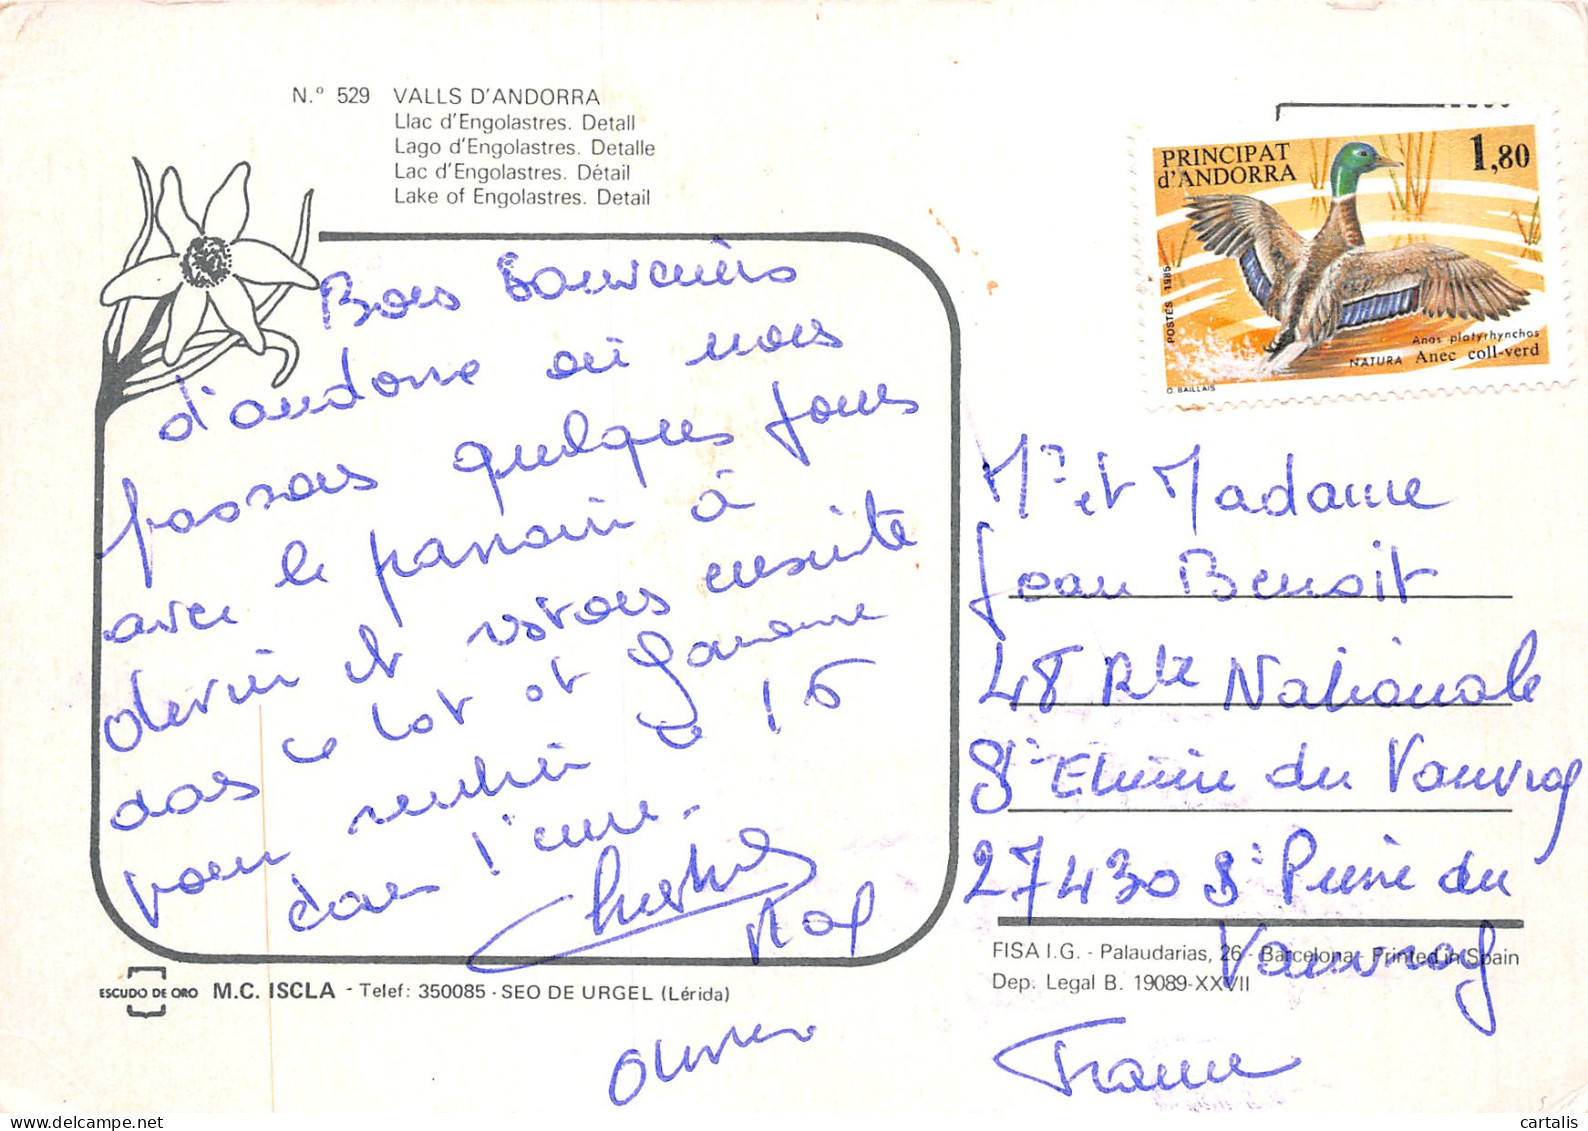 N.º 529 VALLS D'ANDORRA
Llac d'Engolastres. Detall
Lago d'Engolastres. Detalle
Lac d'Engolastres. Détail
Lake of Engolastres. Detail
PRINCIPAT
d'ANDORRA
1,80
POSTES 1985
Anas platyrhynchos
NATURA Anec coll-verd
O. BAILLAIS
Bons souvenirs
d'andorre où nous
passons quelques jours
avec le à
olivier et ensuite
dans le lot et garonne
pour le 16
dans l'eure.
Olivier
Mr et Madame
Jean Benoit
48 Rte Nationale
St Etienne du Vauvray
27430 St Pierre du
Vauvray
France
ESCUDO DE ORO M.C. ISCLA - Telef: 350085 - SEO DE URGEL (Lérida)
FISA I.G. - Palaudarias, 26 - Barcelona - Printed in Spain
Dep. Legal B. 19089-XXVII
cartalis